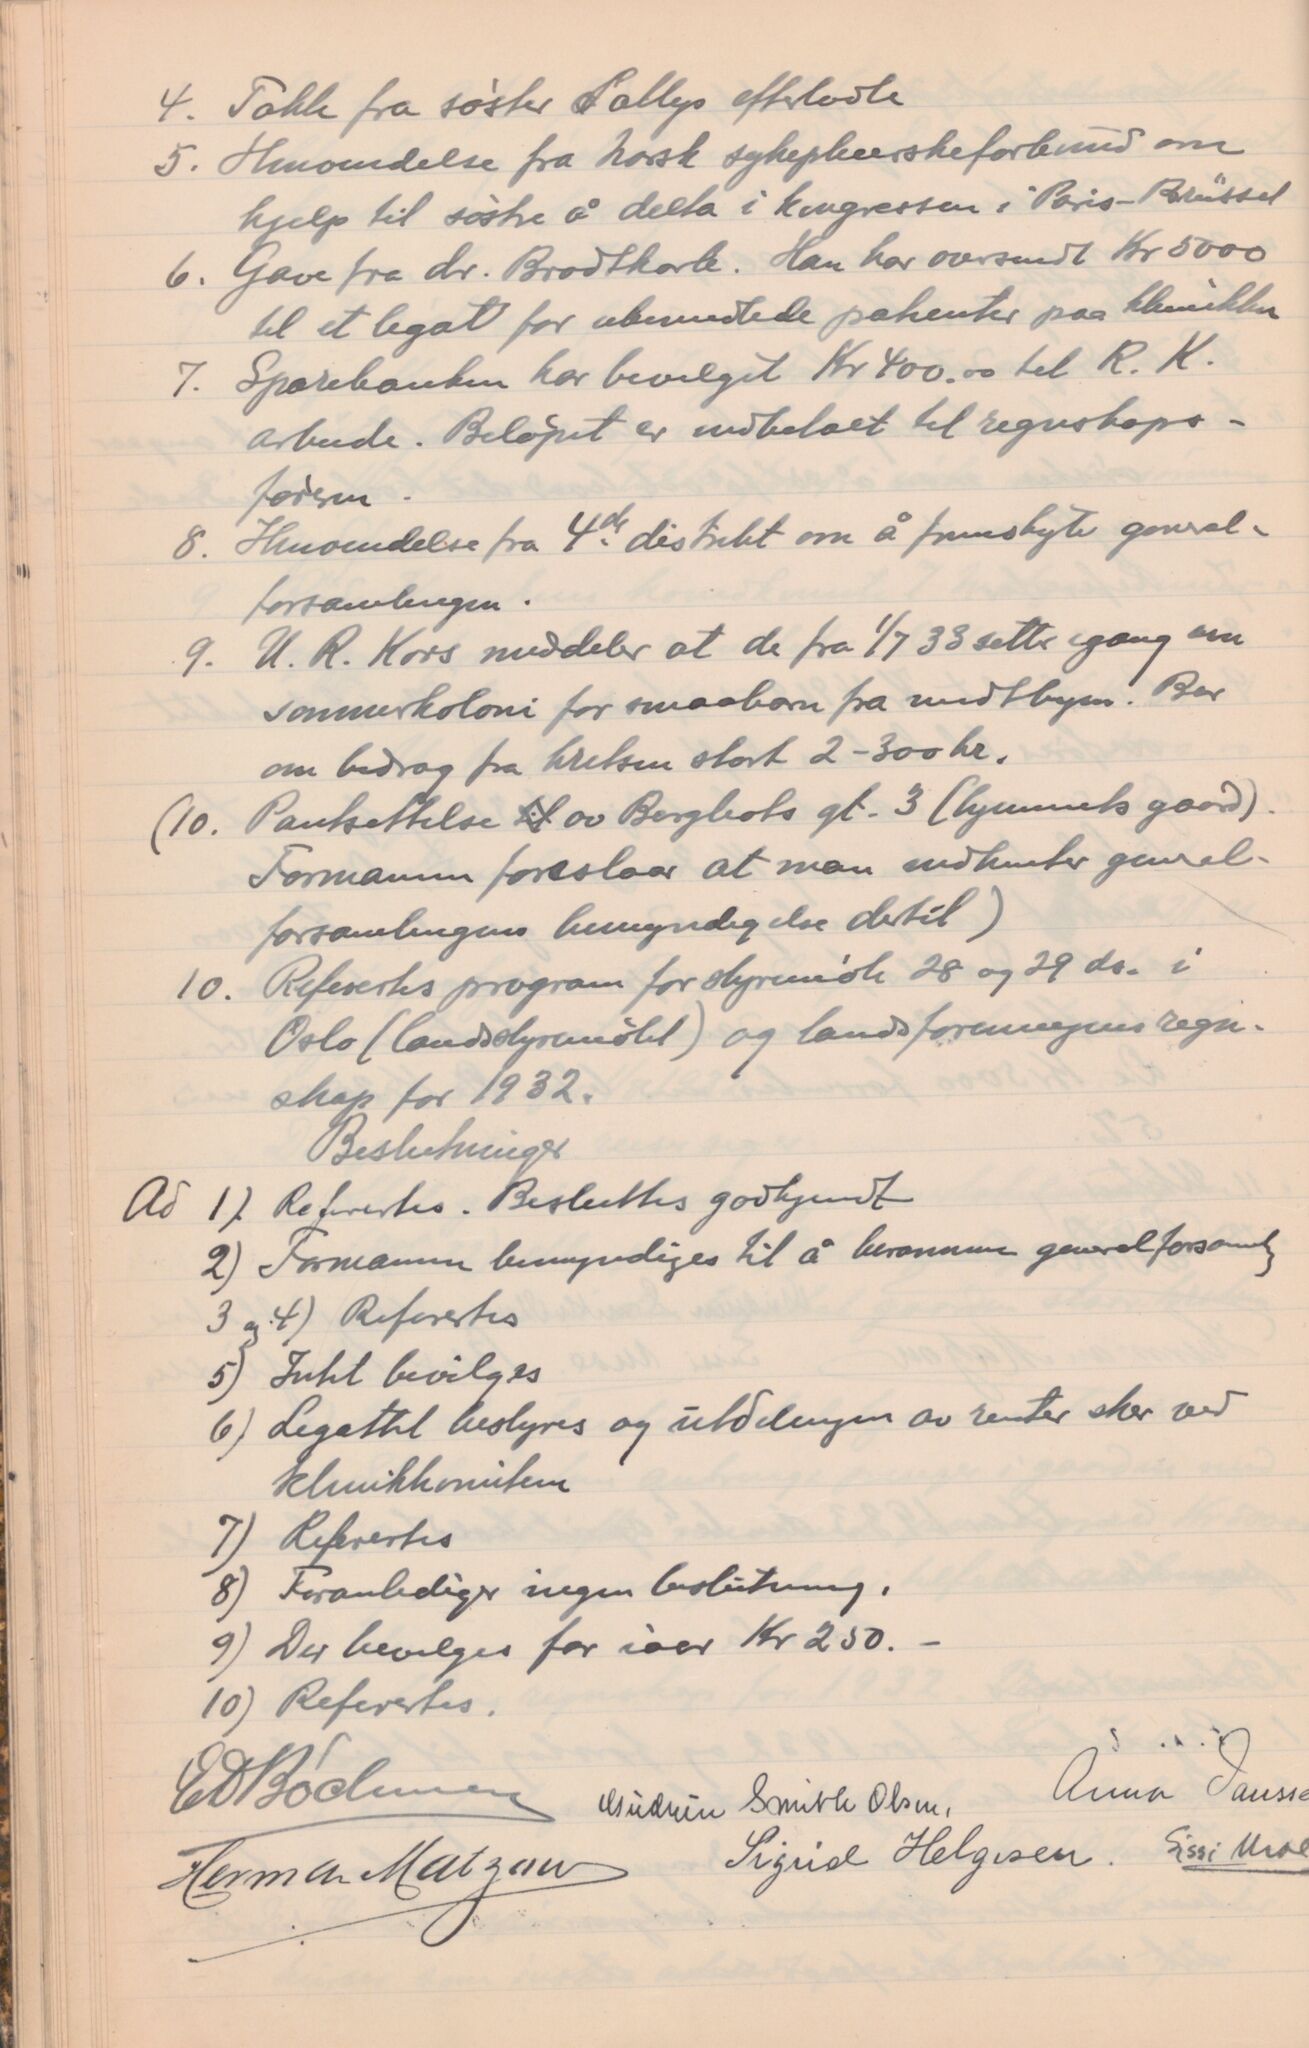 4. Takk fra søster Sallys efterladte
5. Henvendelse fra Norsk sykepleierskeforbund om
hjelp til søstre å delta i kongressen i Paris-Brüssel
6. Gave fra dr. Brodtkorb. Han har oversendt Kr 5000
til et legat for ubemidlede patienter paa klinikken
7. Sparebanken har bevilget Kr 400.00 til R. K.
arbeide. Beløpet er indbetalt til regnskaps-
føreren.
8. Henvendelse fra 4de distrikt om å fremskyte general-
forsamlingen.
9. U. R. Kors meddeler at de fra 1/7 33 setter igang en
sommerkoloni for smaabarn fra midtbyen. Ber
om bidrag fra kretsen stort 2-300 kr.
(10. Pantsettelse av Bergliots gt. 3 (hjemmets gaard).
Formannen foreslaar at man indhenter general-
forsamlingens bemyndigelse dertil)
10. Refertes program for styremøte 28 og 29 ds. i
Oslo (landsstyremøtet) og landsforeningens regn-
skap for 1932.
Beslutninger
Ad 1). Refertes. Besluttes godkjendt
2) Formannen bemyndiges til å beramme generalforsamlg
3 og 4) Refertes
5) Intet bevilges
6) Legattet bestyres og utdelingen av renter sker ved
klinikkomiteen
7) Refertes
8) Foranlediger ingen beslutning.
9) Der bevilges for iaar Kr 250.-
10) Refertes.
Gudrun Smith Olsen. Anna
Herman Matzow Sigrid Helgesen. Sissi